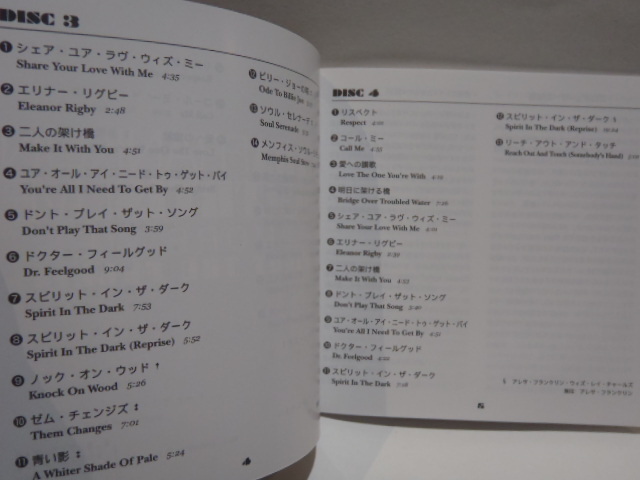 DISC 3
❶ シェア・ユア・ラヴ・ウィズ・ミー
Share Your Love With Me 4:35
❷ エリナー・リグビー
Eleanor Rigby 2:48
❸ 二人の架け橋
Make It With You 4:51
❹ ユア・オール・アイ・ニード・トゥ・ゲット・バイ
You're All I Need To Get By 4:52
❺ ドント・プレイ・ザット・ソング
Don't Play That Song 3:59
❻ ドクター・フィールグッド
Dr. Feelgood 9:04
❼ スピリット・イン・ザ・ダーク
Spirit In The Dark 7:53
❽ スピリット・イン・ザ・ダーク
Spirit In The Dark (Reprise) 5:52
❾ ノック・オン・ウッド †
Knock On Wood 5:26
❿ ゼム・チェンジズ ‡
Them Changes 7:01
⓫ 青い影 ‡
A Whiter Shade Of Pale 5:24
⓬ ビリー・ジョーの
Ode To Billie Joe
⓭ ソウル・セレナーデ
Soul Serenade
⓮ メンフィス・ソウル・
Memphis Soul
4
DISC 4
❶ リスペクト
Respect
❷ コール・ミー
Call Me
❸ 愛への讃歌
Love The One You're With
❹ 明日に架ける橋
Bridge Over Troubled Water
❺ シェア・ユア・ラヴ・ウィズ・ミー
Share Your Love With Me
❻ エリナー・リグビー
Eleanor Rigby
❼ 二人の架け橋
Make It With You
❽ ドント・プレイ・ザット・ソング
Don't Play That Song
❾ ユア・オール・アイ・ニード・トゥ・ゲット・バイ
You're All I Need To Get By
❿ ドクター・フィールグッド
Dr. Feelgood
⓫ スピリット・イン・ザ・ダーク
Spirit In The Dark
⓬ スピリット・イン・ザ・ダーク §
Spirit In The Dark (Reprise)
⓭ リーチ・アウト・アンド・タッチ
Reach Out And Touch (Somebody's Hand)
§ アレサ・フランクリン・ウィズ・レイ・チャールズ
アレサ・フランクリン